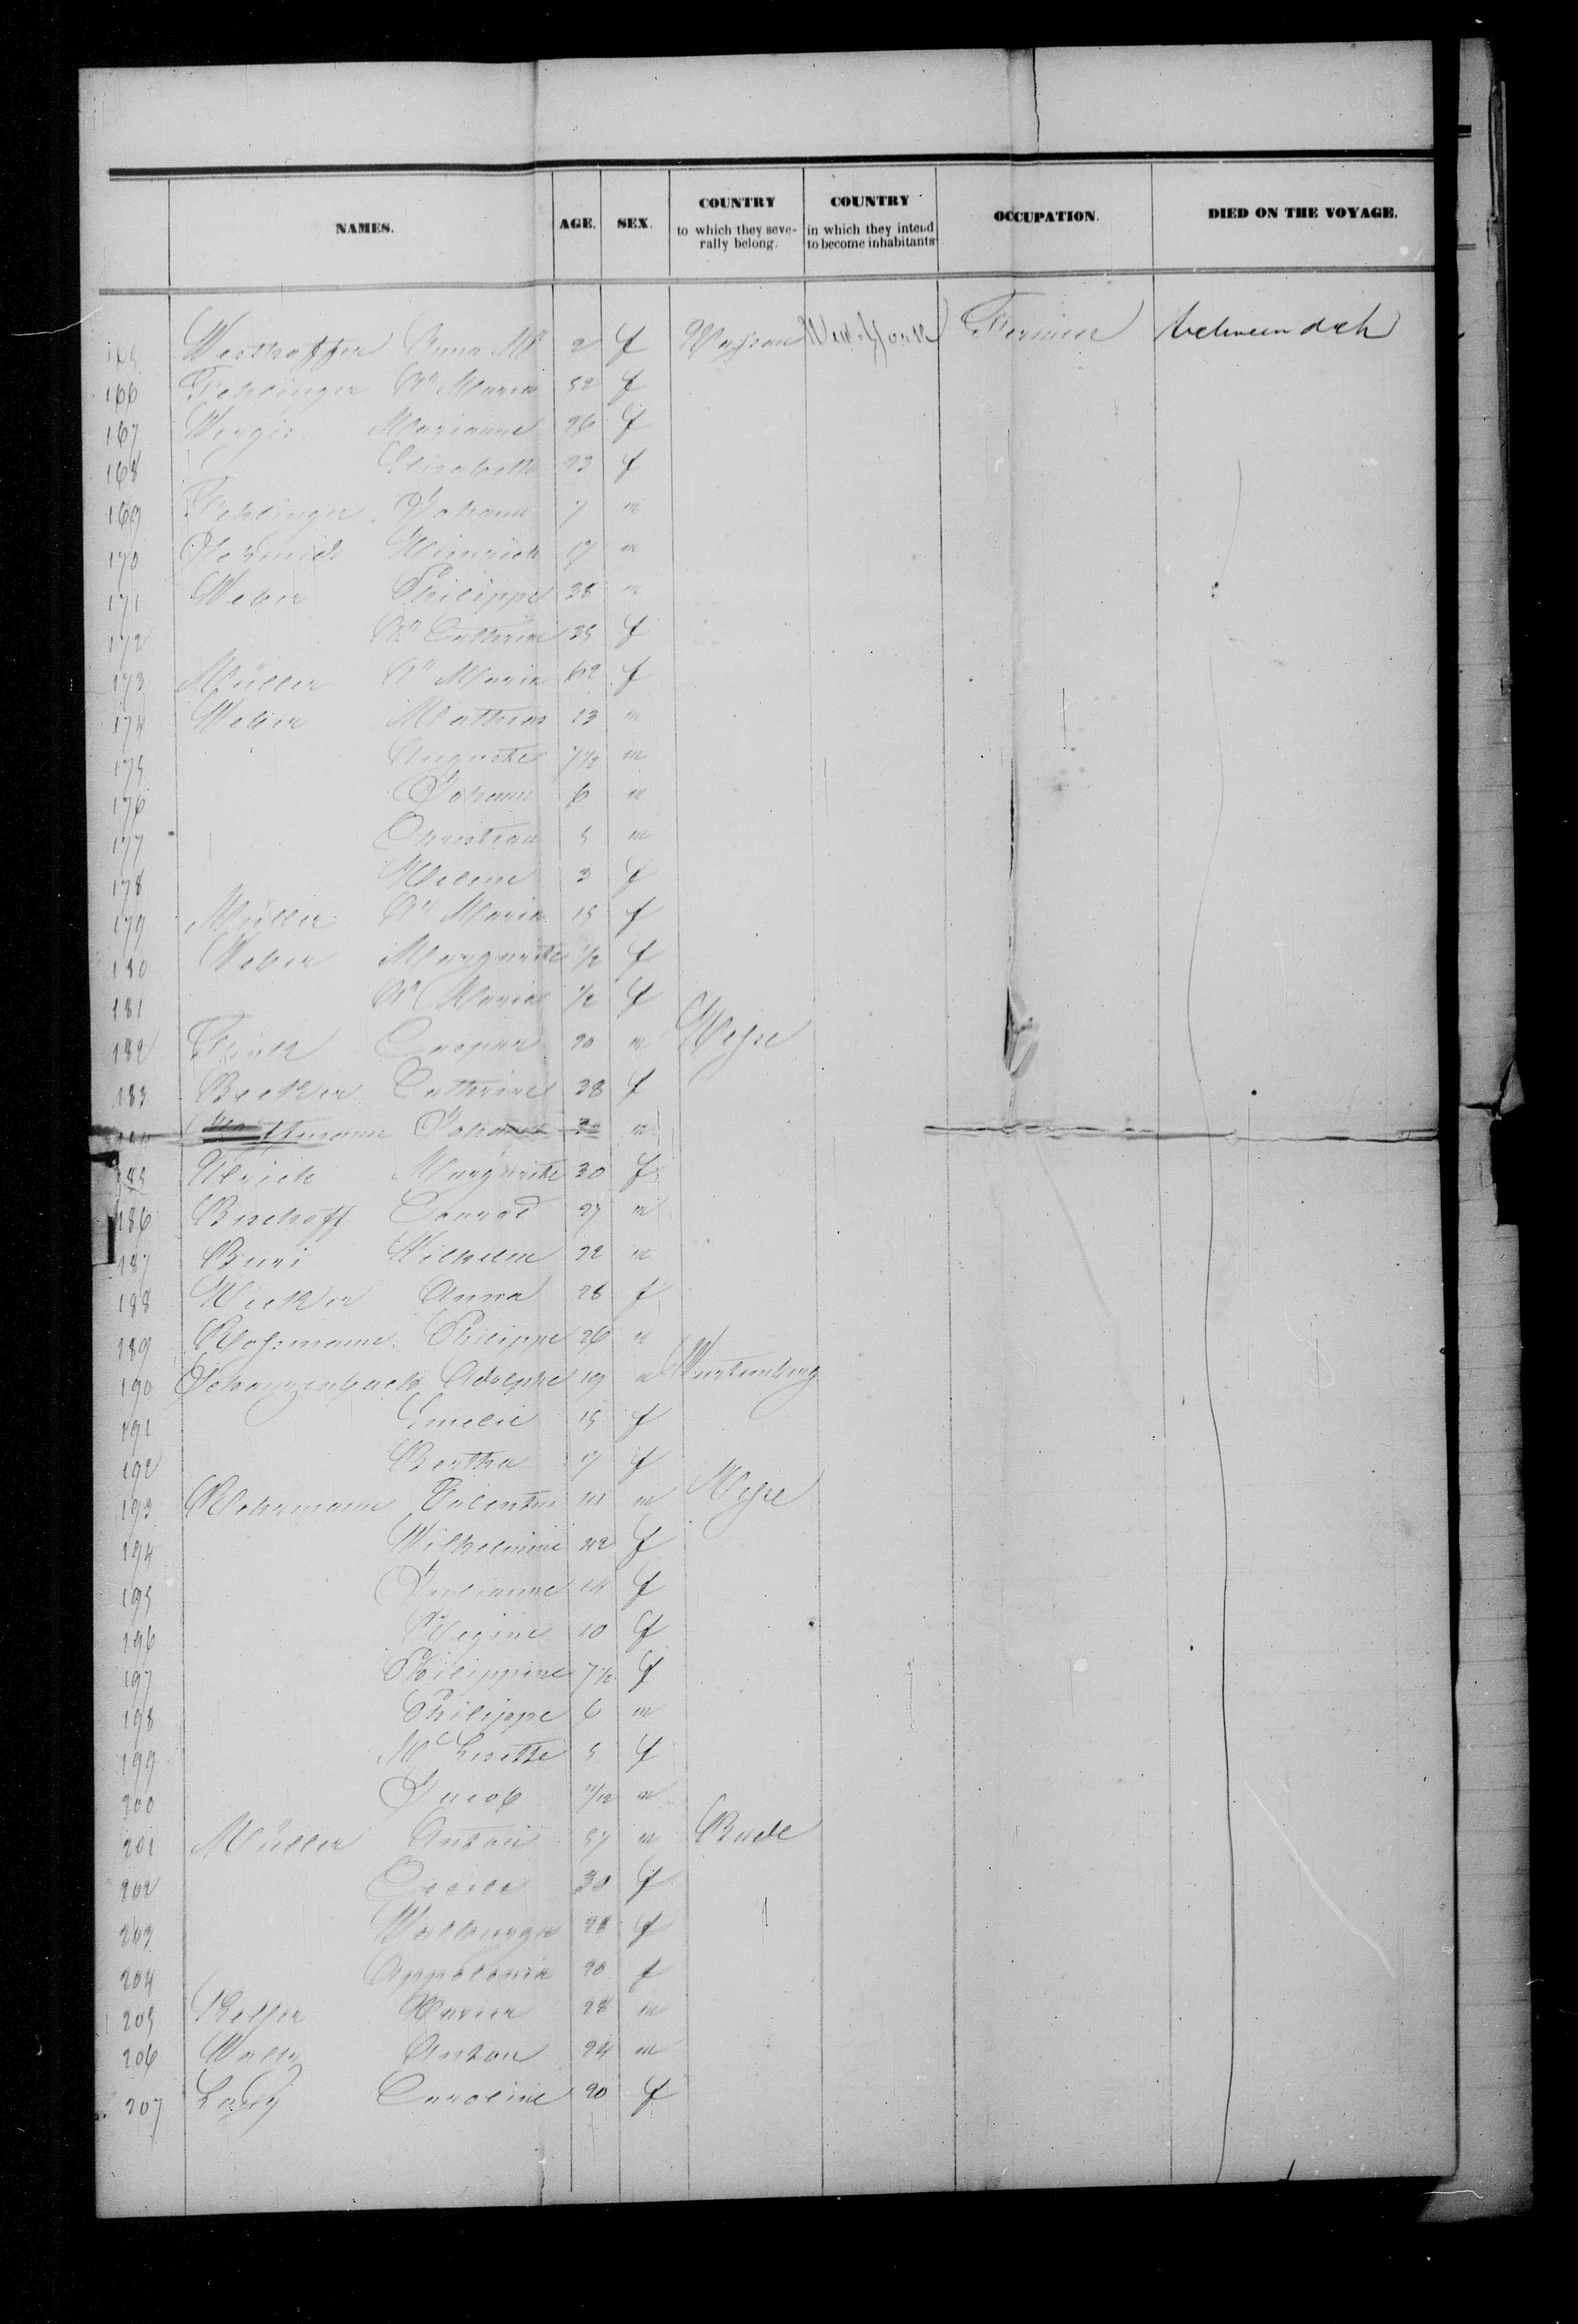 NAMES. AGE. SEX. COUNTRY to which they severally belong. COUNTRY in which they intend to become inhabitants OCCUPATION. DIED ON THE VOYAGE.
165 Westhoffer Anna Ma 2 f Nassau New-York Farmer between deck
166 Fehlinger An Maria 52 f
167 Marianne 26 f
168 Elisabeth 23 f
169 Fehlinger Johann 7 m
170 Heinrich 17 m
171 Weber Philippe 38 m
172 An Catherine 35 f
173 Müller An Maria 62 f
174 Weber Mathias 13 m
175 Auguste 7 1/2 m
176 Johann 6 m
177 Christian 5 m
178 Helene 3 f
179 Müller An Maria 15 f
180 Weber Marguerite 1/2 f
181 An Maria 1/2 f
182 Caspar 20 m Hesse
183 Becker Catherine 38 f
184 Johann m
185 Ulrich Marguerite 30 f
186 Bischoff Conrad 27 m
187 Buri Wilhelm 22 m
188 Anna 28 f
189 Philippe 26 m
190 Adolphe 19 m Wurtemberg
191 Emelie 15 f
192 Bertha 17 f
193 Valentin 41 m Hesse
194 Wilhelmine 42 f
195 Julianne 14 f
196 Regine 10 f
197 Philippine 7 1/2 f
198 Philippe 6 m
199 M Lisette 5 f
200 Jacob 11/12 m
201 Müller Anton 57 m Bade
202 Cecile 30 f
203 Walburga f
204 Appolonia 20 f
205 Keller Xavier 28 m
206 Anton 24 m
207 Caroline 20 f